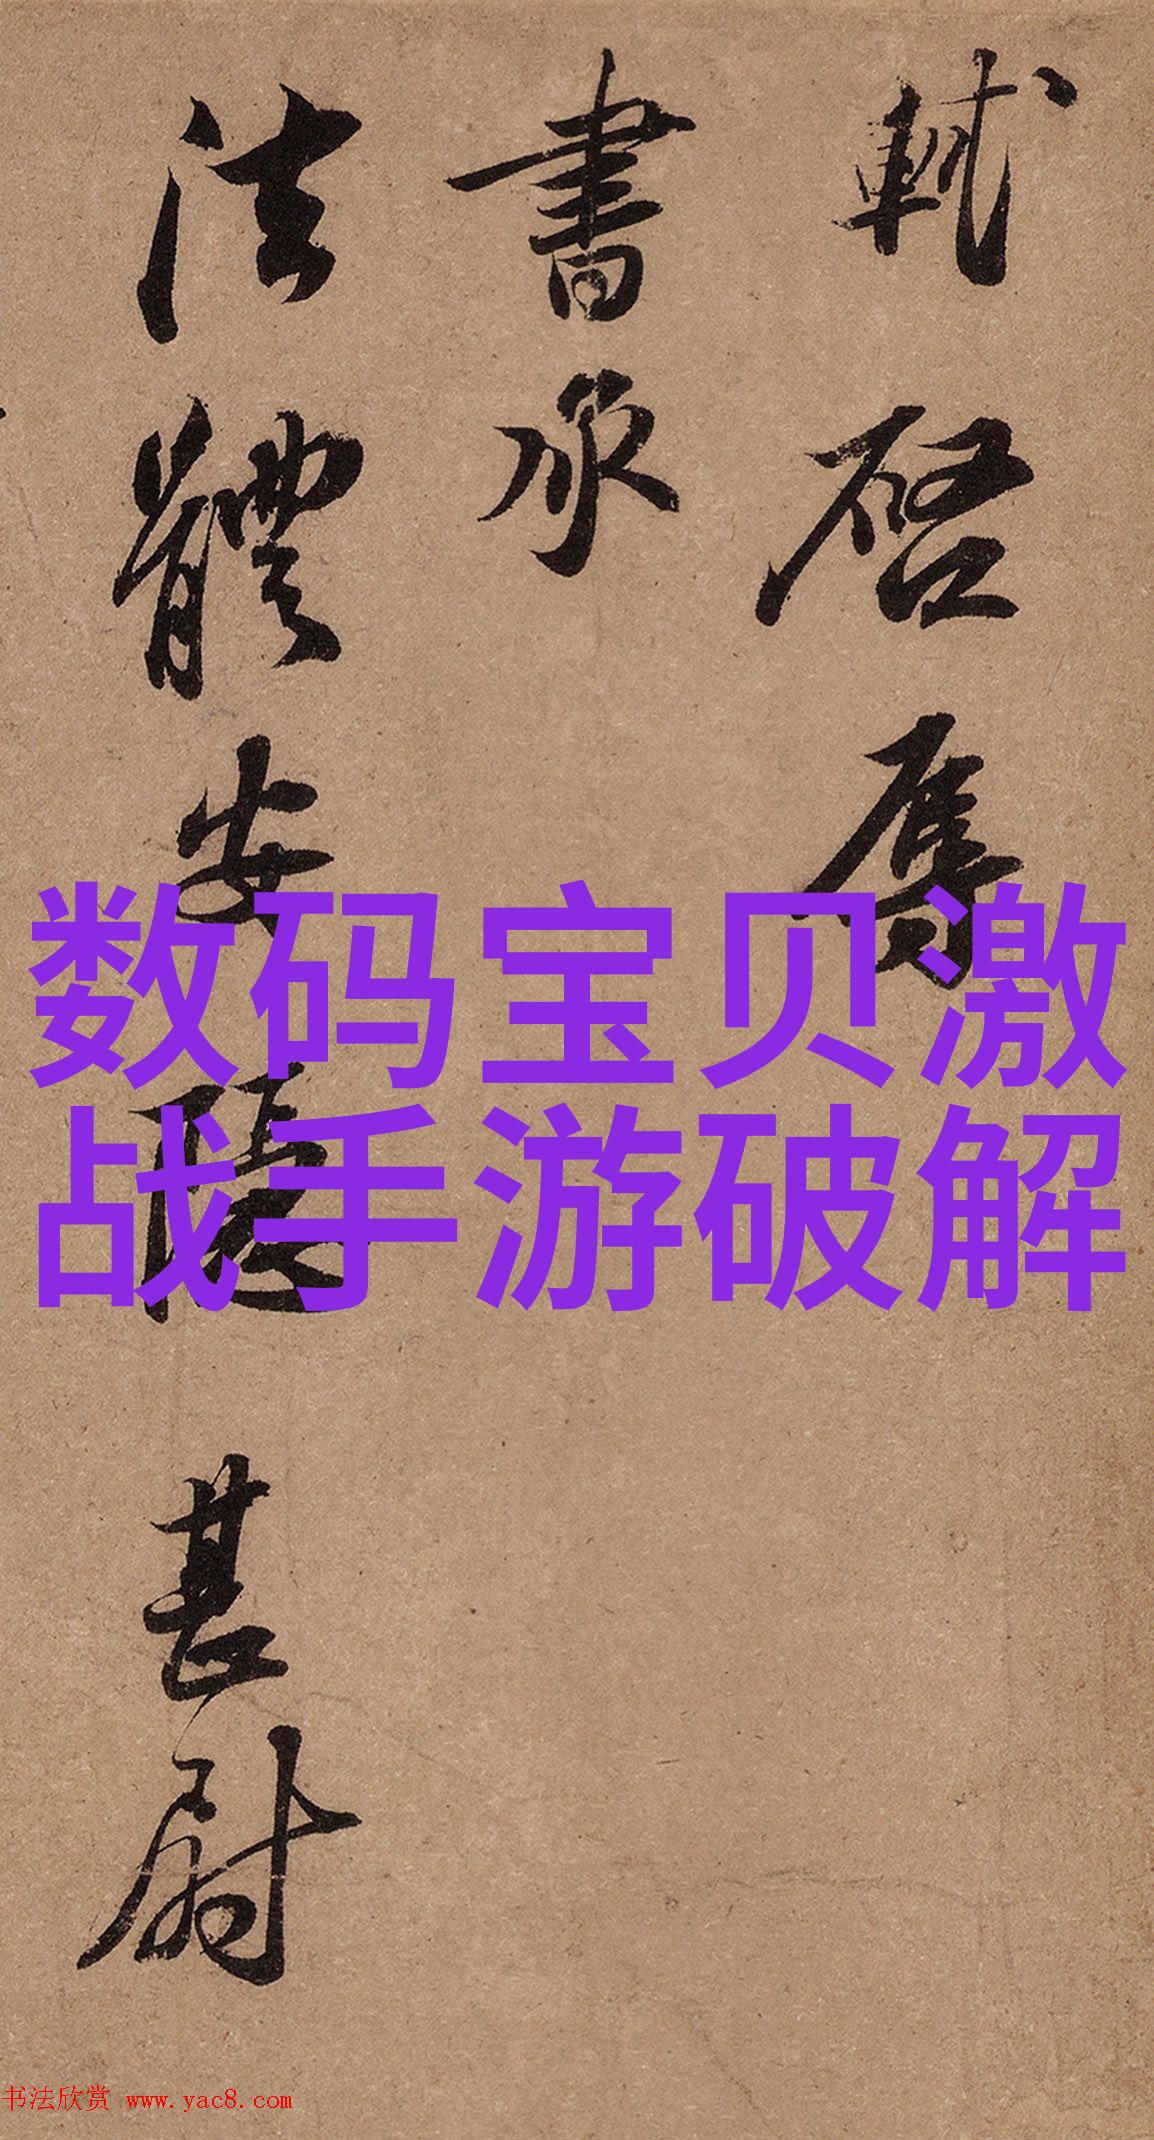 軾啓辱
書承
法體安隱甚尉
数码宝贝激
战手游破解
书法欣赏 www.yac8.com